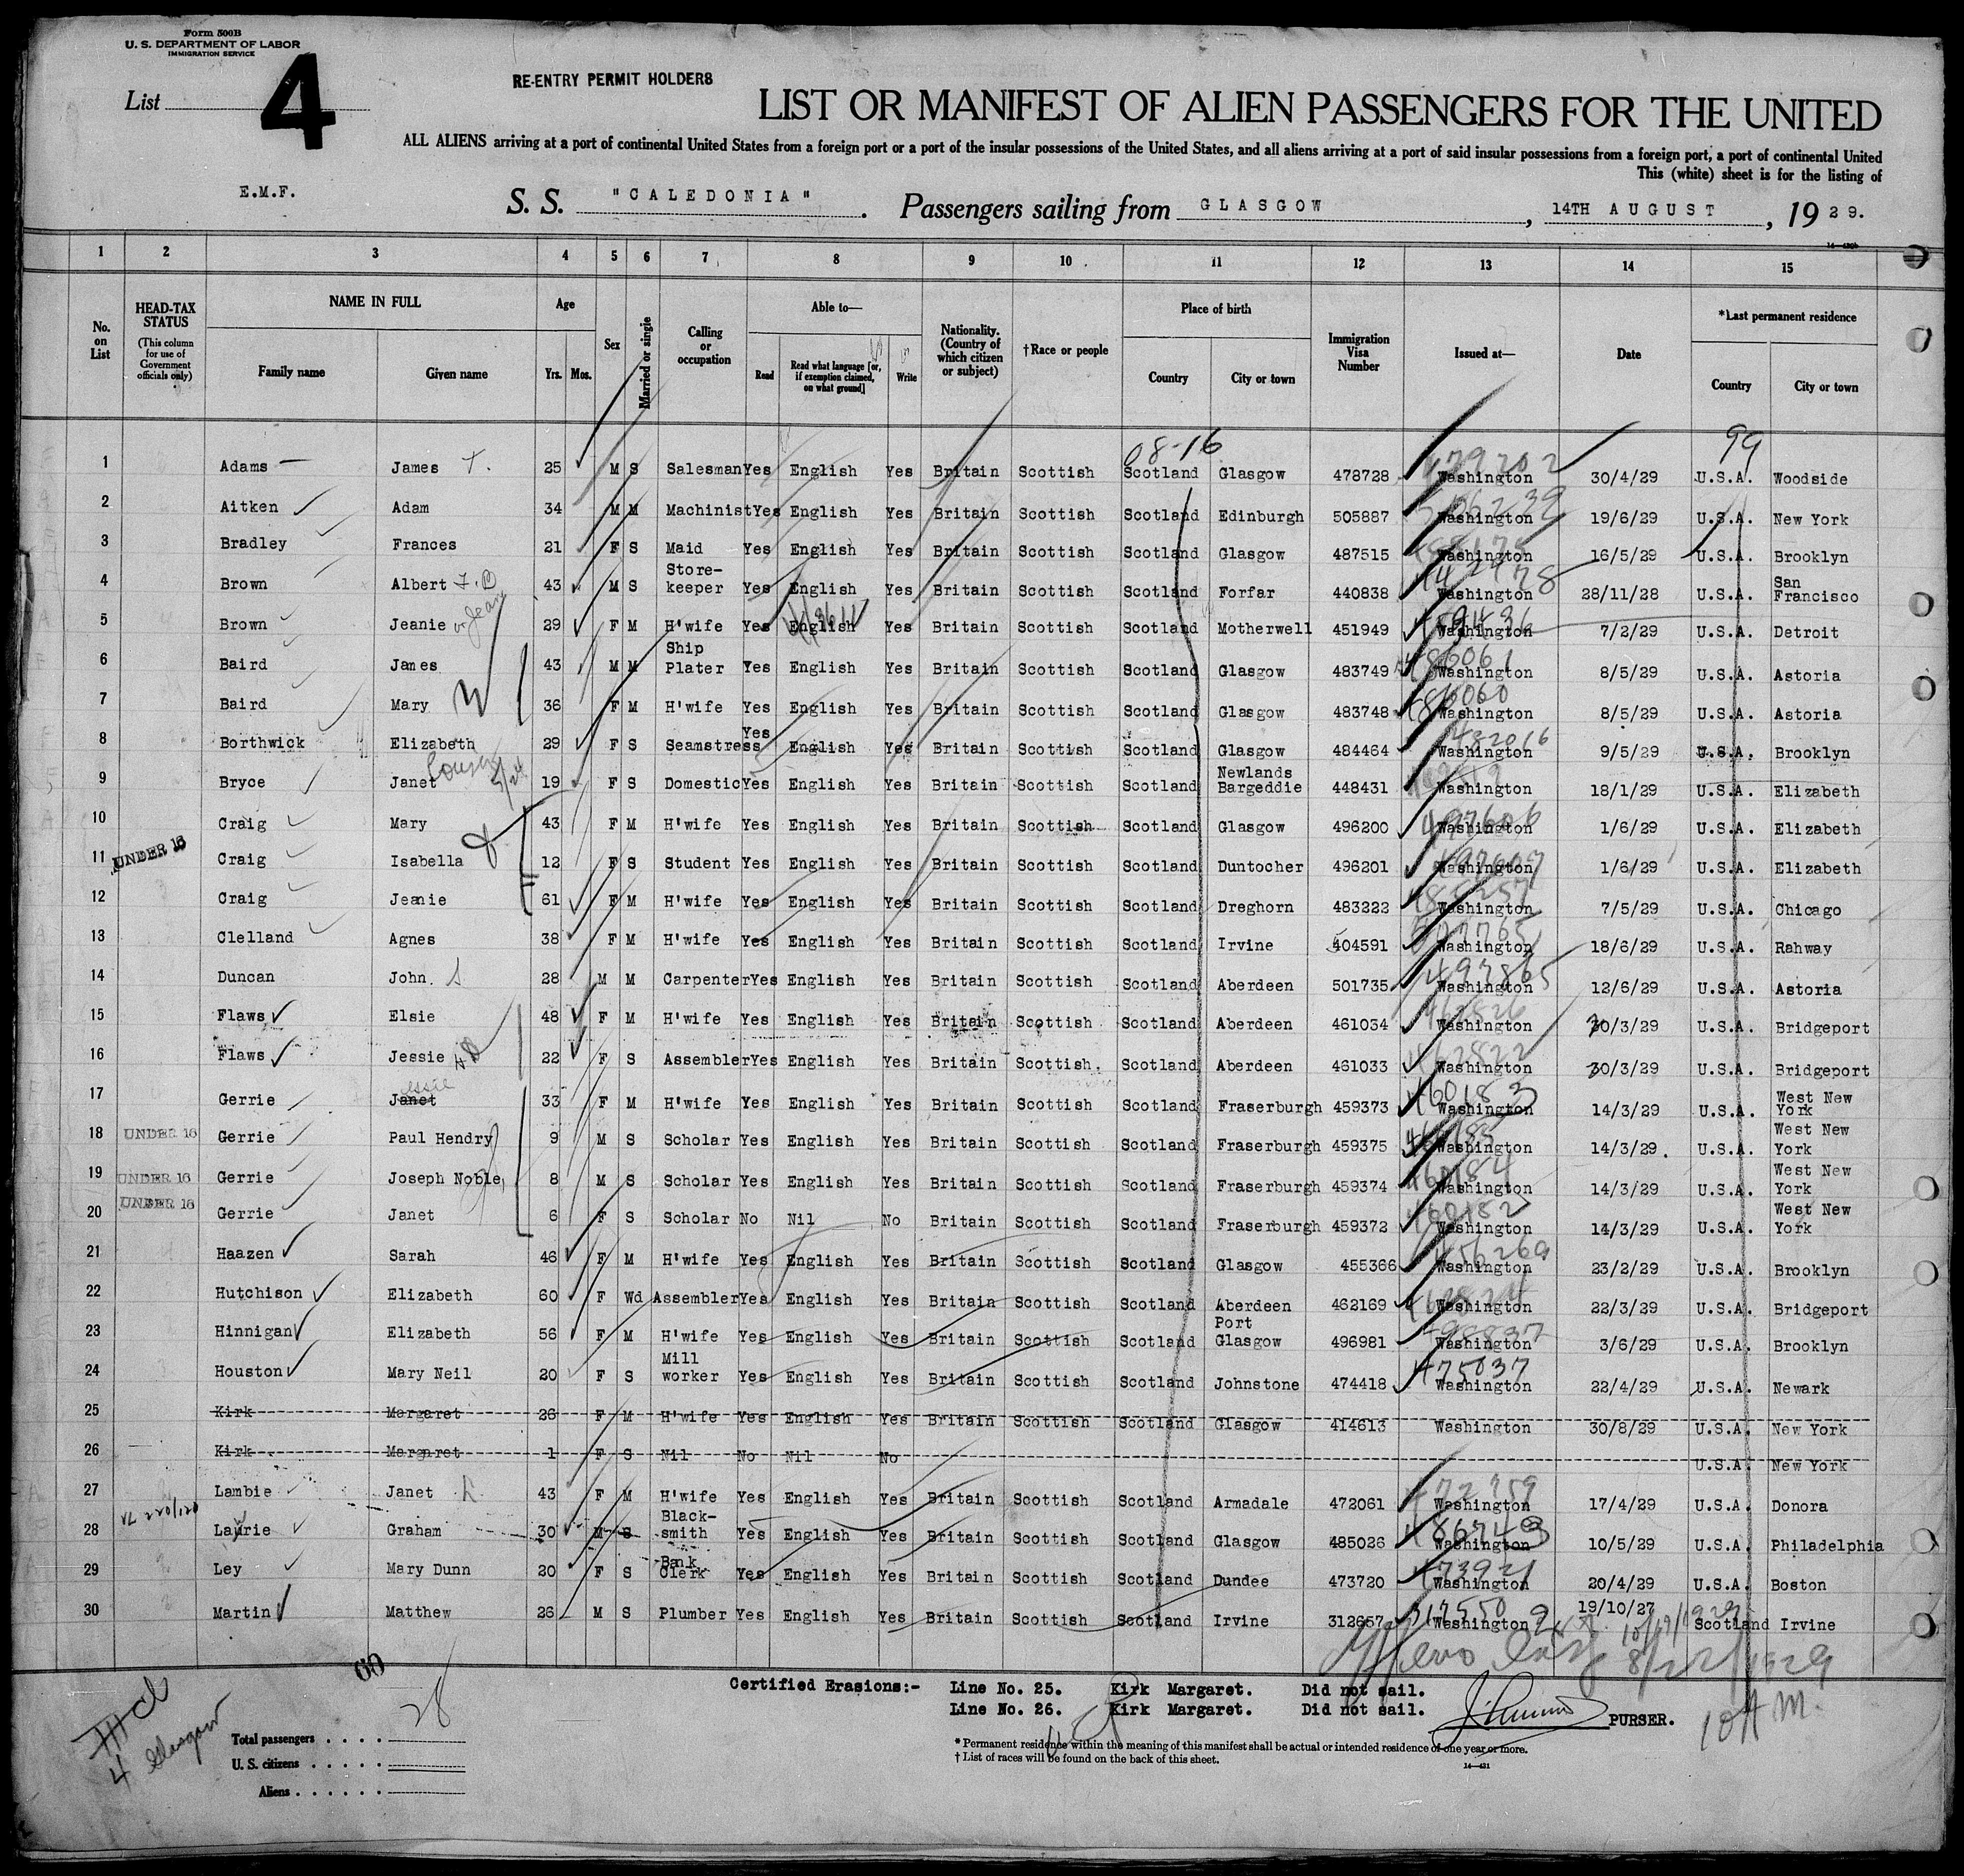 Form 500B
U. S. DEPARTMENT OF LABOR
IMMIGRATION SERVICE
List 4
RE-ENTRY PERMIT HOLDERS
LIST OR MANIFEST OF ALIEN PASSENGERS FOR THE UNITED
ALL ALIENS arriving at a port of continental United States from a foreign port or a port of the insular possessions of the United States, and all aliens arriving at a port of said insular possessions from a foreign port, a port of continental United
This (white) sheet is for the listing of
E.M.F.
S. S. "CALEDONIA". Passengers sailing from GLASGOW, 14TH AUGUST, 1929.
1 2 3 4 5 6 7 8 9 10 11 12 13 14 15
No. on List
HEAD-TAX STATUS
(This column for use of Government officials only)
NAME IN FULL
Family name Given name
Age
Yrs. Mos.
Sex
Married or single
Calling or occupation
Able to—
Read Read what language [or, if exemption claimed, on what ground] Write
Nationality. (Country of which citizen or subject)
†Race or people
Place of birth
Country City or town
Immigration Visa Number
Issued at—
Date
*Last permanent residence
Country City or town
08-16 99
1 Adams James T. 25 M S Salesman Yes English Yes Britain Scottish Scotland Glasgow 478728 Washington 30/4/29 U.S.A. Woodside
2 Aitken Adam 34 M M Machinist Yes English Yes Britain Scottish Scotland Edinburgh 505887 Washington 19/6/29 U.S.A. New York
3 Bradley Frances 21 F S Maid Yes English Yes Britain Scottish Scotland Glasgow 487515 Washington 16/5/29 U.S.A. Brooklyn
4 Brown Albert 43 M S Store-keeper Yes English Yes Britain Scottish Scotland Forfar 440838 Washington 28/11/28 U.S.A. San Francisco
5 Brown Jeanie or Jean 29 F M H'wife Yes English Yes Britain Scottish Scotland Motherwell 451949 Washington 7/2/29 U.S.A. Detroit
6 Baird James 43 M M Ship Plater Yes English Yes Britain Scottish Scotland Glasgow 483749 Washington 8/5/29 U.S.A. Astoria
7 Baird Mary 36 F M H'wife Yes English Yes Britain Scottish Scotland Glasgow 483748 Washington 8/5/29 U.S.A. Astoria
8 Borthwick Elizabeth 29 F S Seamstress Yes English Yes Britain Scottish Scotland Glasgow 484464 Washington 9/5/29 U.S.A. Brooklyn
9 Bryce Janet 19 F S Domestic Yes English Yes Britain Scottish Scotland Newlands Bargeddie 448431 Washington 18/1/29 U.S.A. Elizabeth
10 Craig Mary 43 F M H'wife Yes English Yes Britain Scottish Scotland Glasgow 496200 497606 Washington 1/6/29 U.S.A. Elizabeth
11 UNDER 16 Craig Isabella 12 F S Student Yes English Yes Britain Scottish Scotland Duntocher 496201 497607 Washington 1/6/29 U.S.A. Elizabeth
12 Craig Jeanie 61 F M H'wife Yes English Yes Britain Scottish Scotland Dreghorn 483222 Washington 7/5/29 U.S.A. Chicago
13 Clelland Agnes 38 F M H'wife Yes English Yes Britain Scottish Scotland Irvine 404591 Washington 18/6/29 U.S.A. Rahway
14 Duncan John. S 28 M M Carpenter Yes English Yes Britain Scottish Scotland Aberdeen 501735 497865 Washington 12/6/29 U.S.A. Astoria
15 Flaws Elsie 48 F M H'wife Yes English Yes Britain Scottish Scotland Aberdeen 461034 Washington 30/3/29 U.S.A. Bridgeport
16 Flaws Jessie 22 F S Assembler Yes English Yes Britain Scottish. Scotland Aberdeen 461033 462822 Washington 30/3/29 U.S.A. Bridgeport
17 Gerrie Janet essie 33 F M H'wife Yes English Yes Britain Scottish Scotland Fraserburgh 459373 460183 Washington 14/3/29 U.S.A. West New York
18 UNDER 16 Gerrie Paul Hendry 9 M S Scholar Yes English Yes Britain Scottish Scotland Fraserburgh 459375 460185 Washington 14/3/29. U.S.A. West New York
19 UNDER 16 Gerrie Joseph Noble 8 M S Scholar Yes English Yes Britain Scottish Scotland Fraserburgh 459374 460184 Washington 14/3/29 U.S.A. West New York
20 UNDER 16 Gerrie Janet 6 F S Scholar No Nil No Britain Scottish Scotland Fraserburgh 459372 460182 Washington 14/3/29 U.S.A. West New York
21 Haazen Sarah 46 F M H'wife Yes English Yes Britain Scottish Scotland Glasgow 455366 456269 Washington 23/2/29 U.S.A. Brooklyn
22 Hutchison Elizabeth 60 F Wd Assembler Yes English Yes Britain Scottish Scotland Aberdeen 462169 Washington 22/3/29 U.S.A. Bridgeport
23 Hinnigan Elizabeth 56 F M H'wife Yes English Yes Britain Scottish Scotland Port Glasgow 496981 498837 Washington 3/6/29 U.S.A. Brooklyn
24 Houston Mary Neil 20 F S Mill worker Yes English Yes Britain Scottish Scotland Johnstone 474418 475037 Washington 22/4/29 U.S.A. Newark
25 Kirk Margaret 26 F M H'wife Yes English Yes Britain Scottish Scotland Glasgow 414613 Washington 30/8/29 U.S.A. New York
26 Kirk Margaret 1 F S Nil No Nil No U.S.A. New York
27 Lambie Janet 43 F M H'wife Yes English Yes Britain Scottish Scotland Armadale 472061 472959 Washington 17/4/29 U.S.A. Donora
28 Laurie Graham 30 M S Black-smith Yes English Yes Britain Scottish Scotland Glasgow 485026 486743 Washington 10/5/29 U.S.A. Philadelphia
29 Ley Mary Dunn 20 F S Bank Clerk Yes English Yes Britain Scottish Scotland Dundee 473720 473921 Washington 20/4/29 U.S.A. Boston
30 Martin Matthew 26 M S Plumber Yes English Yes Britain Scottish Scotland Irvine 312657 317550 Washington 19/10/27 Scotland Irvine
8/22/1929
10 A M.
Certified Erasions:- Line No. 25. Kirk Margaret. Did not sail.
Line No. 26. Kirk Margaret. Did not sail.
PURSER.
4 Glasgow
Total passengers 28
U. S. citizens
Aliens
* Permanent residence within the meaning of this manifest shall be actual or intended residence of one year or more.
† List of races will be found on the back of this sheet.
14—431